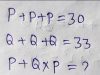 P+P+P=30
Q+Q+Q=33
P+Q×P=?